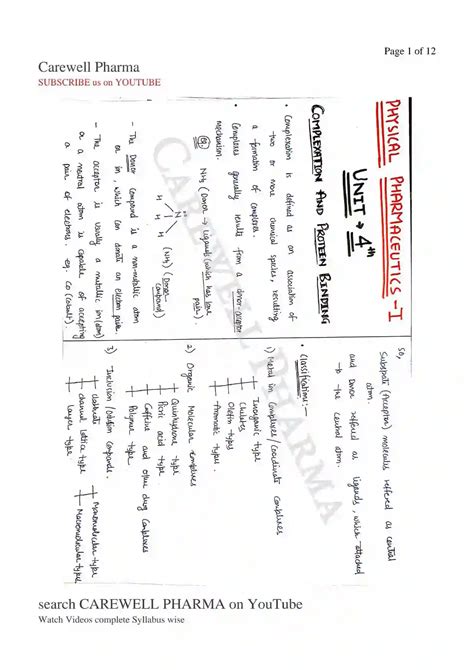 Page 1 of 12
Carewell Pharma
SUBSCRIBE us on YOUTUBE
PHYSICAL PHARMACEUTICS - I
UNIT → 4th
COMPLEXATION AND PROTEIN BINDING
• Complexation is defined as an association of
two or more chemical species, resulting
a formation of complexes.
• Complexes generally results from a donor-acceptor
mechanism.
eg NH3 (Donor → Ligands (which has lone
pair).
N
H H H
(NH3) (Donor
compound)
– The Donor compound is a non-metallic atom
or ion, which can donate an electron pair.
– The acceptor is usually a metallic ion (atom)
or a neutral atom is capable of accepting
a pair of electrons. eg. Co (cobalt).
So,
Substrate (Acceptor) molecules reffered as central
atom.
and Donor reffered as ligands, which attached
to the central atom.
• Classifications:-
1) Metal ion Complexes/Coordinate Complexes
Inorganic type
Chelates
Olefin types
Aromatic types
2) Organic molecular complexes
Quinhydrone type
Picric acid type
Caffeine and other drug complexes
Polymer type
3) Inclusion
Compounds.
clathrate
channel lattice type
Layer type
Monomolecular type
Macromolecular type
CAREWELL PHARMA
search CAREWELL PHARMA on YouTube
Watch Videos complete Syllabus wise